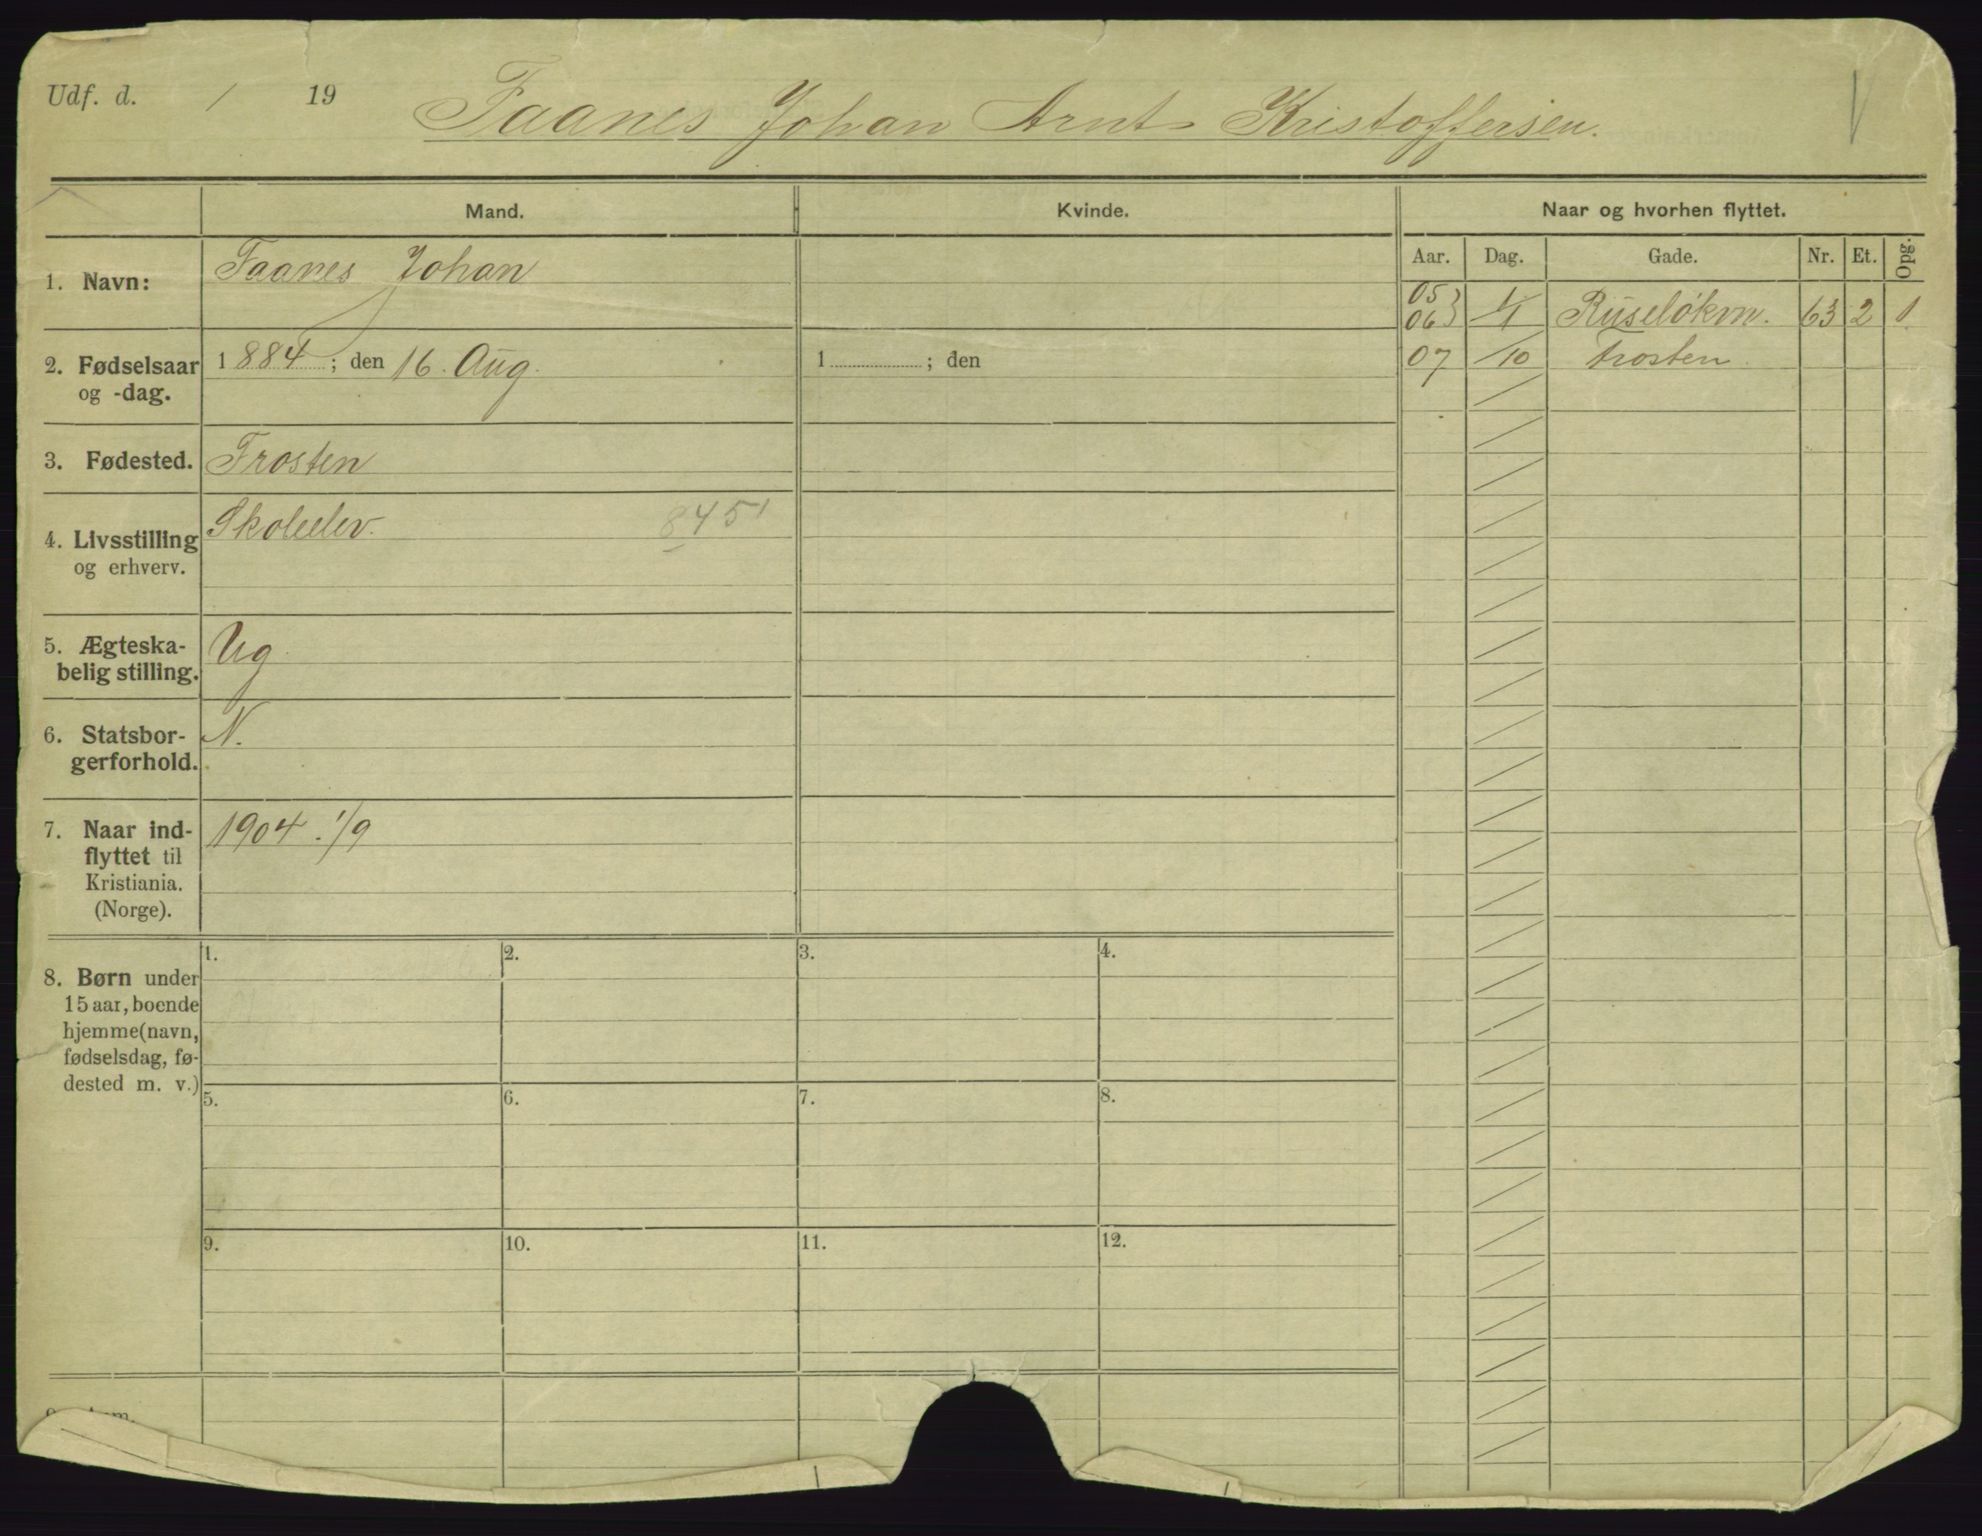 Udf. d. / 19
Faanes Johan Arnt Kristoffersen.
Mand. Kvinde. Naar og hvorhen flyttet.
Aar. Dag. Gade. Nr. Et. Opg.
1. Navn: Faanes Johan
05 } 1/1 Ruseløkvn. 63 2 1
06 }
2. Fødselsaar 1884 ; den 16. Aug. 1 ; den
og -dag.
07 /10 Frosten
3. Fødested. Frosten
4. Livsstilling Skoleelev. 8451
og erhverv.
5. Ægteska- Ug
belig stilling.
6. Statsbor- N.
gerforhold.
7. Naar ind- 1904. 1/9
flyttet til
Kristiania.
(Norge).
8. Børn under
15 aar, boende
hjemme (navn,
fødselsdag, fø-
dested m. v.)
1. 2. 3. 4.
5. 6. 7. 8.
9. 10. 11. 12.